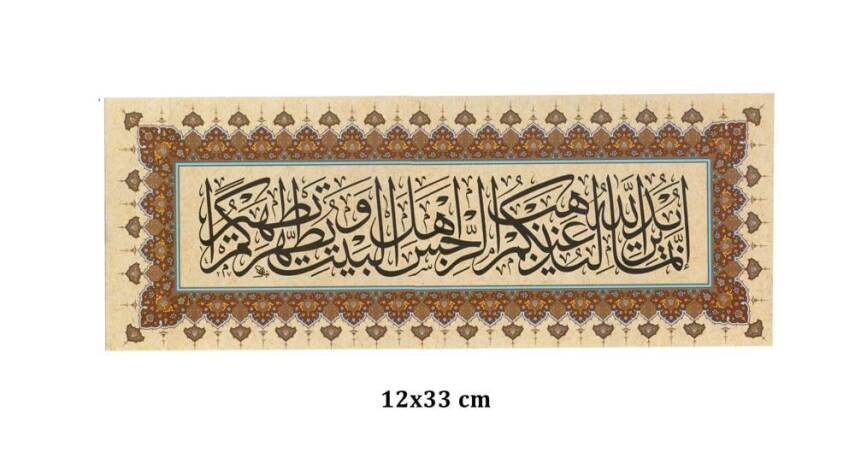 إنما يريد الله ليذهب عنكم الرجس أهل البيت ويطهركم تطهيرا
12x33 cm